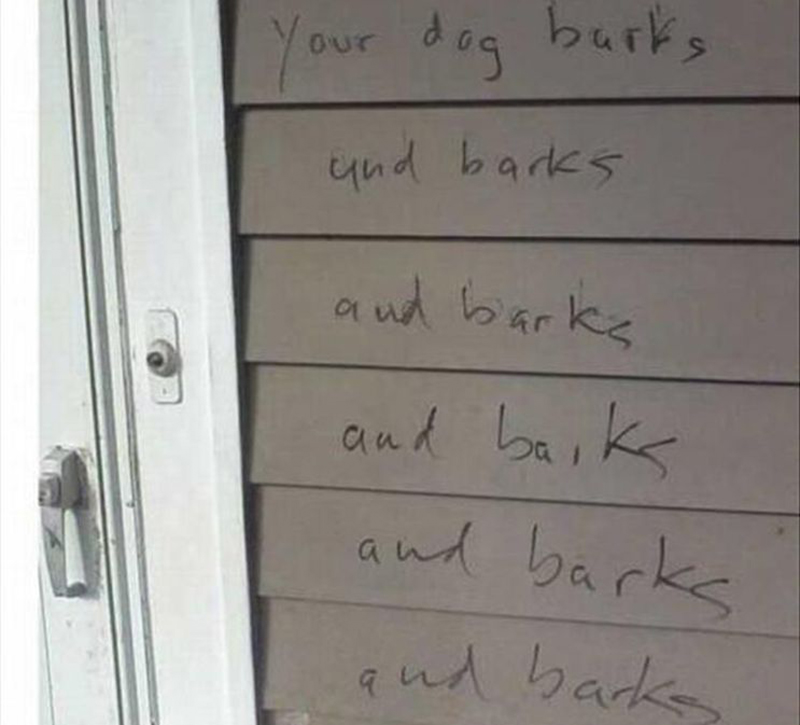 Your dog barks
and barks
and barks
and barks
and barks
and barks